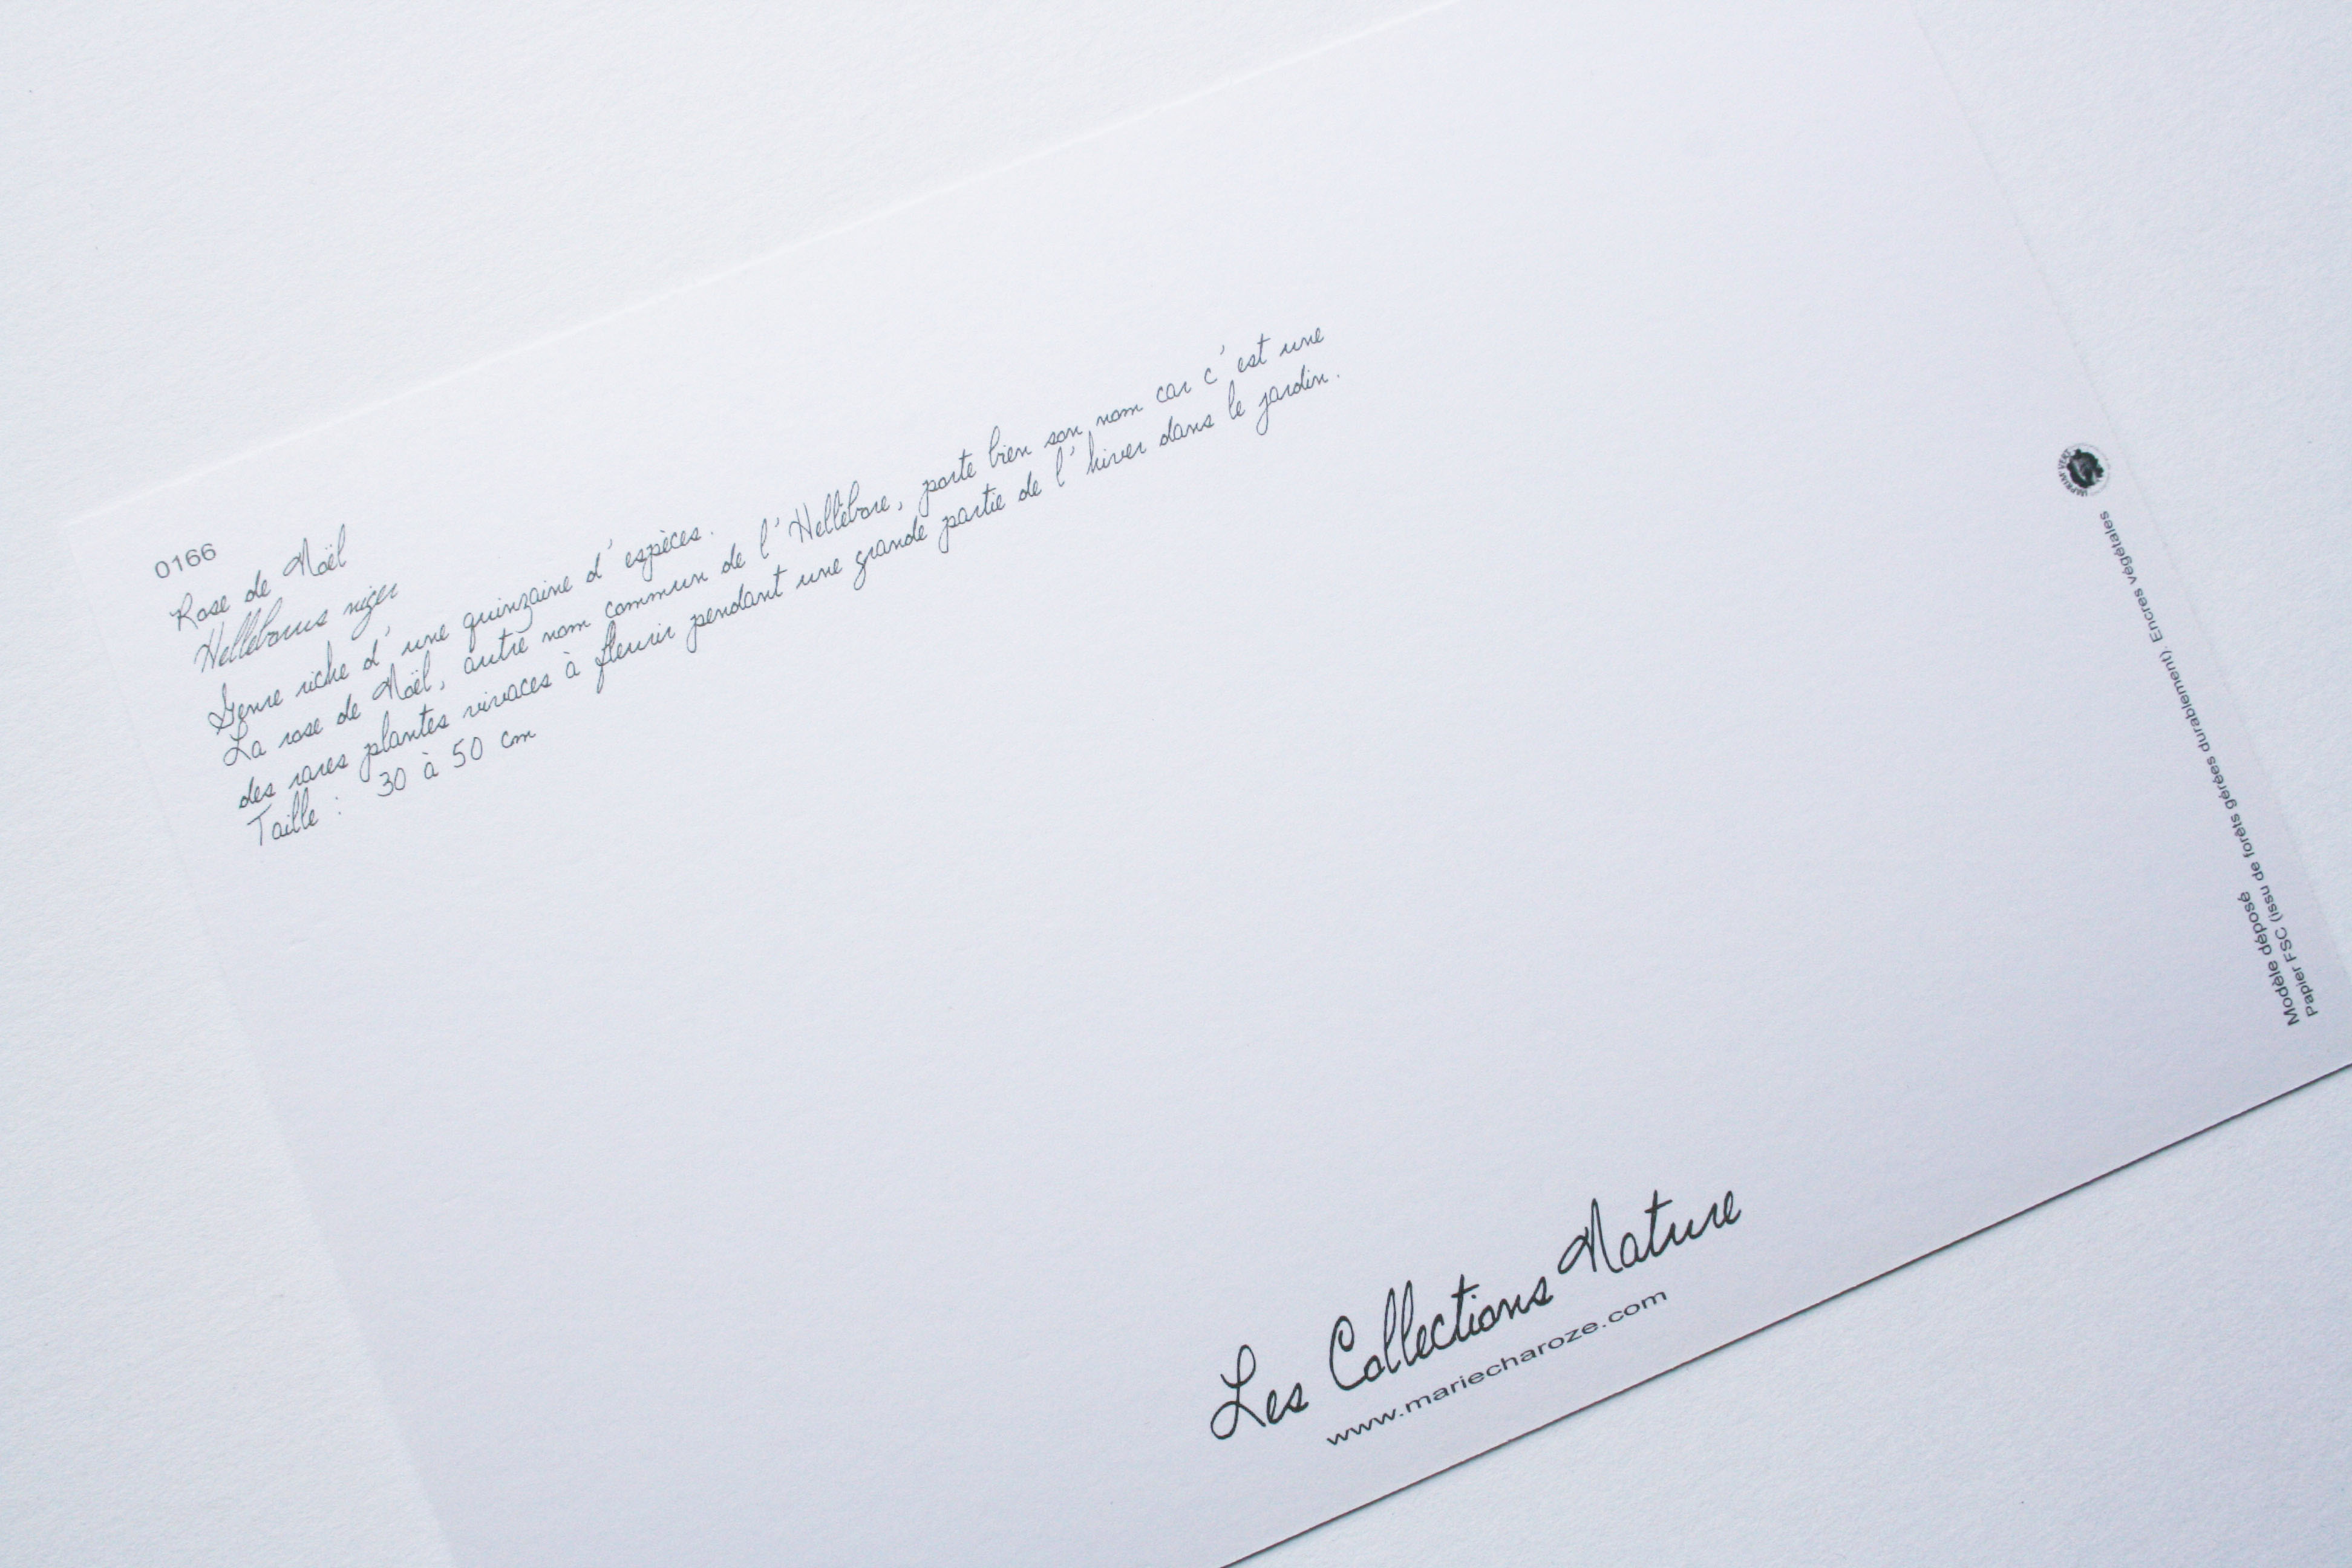 0166
Rose de Noël
Helleborus niger
Genre riche d'une quinzaine d'espèces.
La rose de Noël, autre nom commun de l'Hellébore, porte bien son nom car c'est une
des rares plantes vivaces à fleurir pendant une grande partie de l'hiver dans le jardin.
Taille : 30 à 50 cm
Les Collections Nature
www.mariecharoze.com
Modèle déposé
Papier FSC (issu de forêts gérées durablement). Encres végétales
IMPRIM'VERT